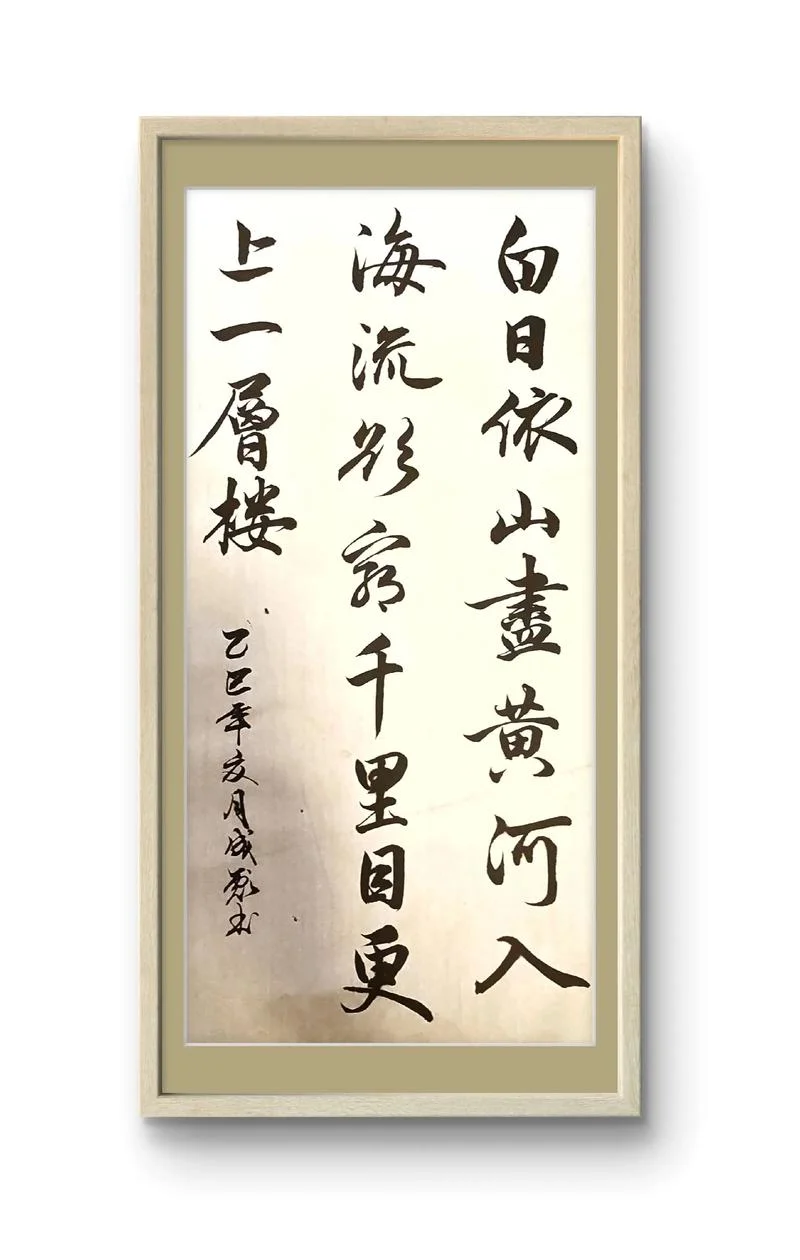 白日依山盡黄河入
海流欲窮千里目更
上一層楼
乙巳年亥月成书